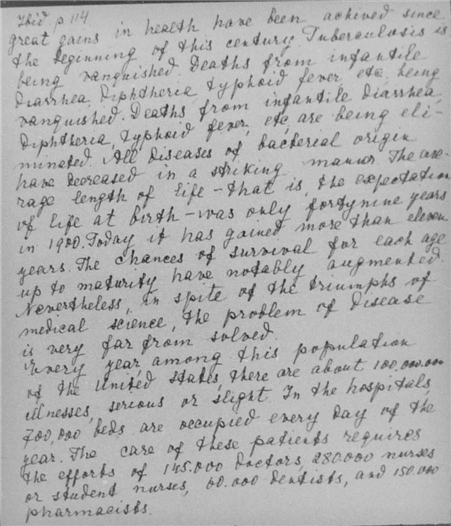 Ibid. p 114
great gains in health have been achived since
the beginning of this century. Tuberculosis is
being vanquished. Deaths from infantile
Diarrhea, Diphtheria, typhoid fever etc. being
vanquished. Deaths from infantile Diarrhea,
Diphtheria, typhoid fever, etc, are being eli-
minated. All Diseases of bacterial origin
have Decreased in a striking manner. The ave-
rage length of life - that is, the expectation
of life at birth - was only forty nine years
in 1900. Today it has gained more than eleven
years. The chances of survival for each age
up to maturity have notably augmented.
Nevertheless, in spite of the triumphs of
medical science, the problem of disease
is very far from solved.
Every year among this population
of the United States there are about 100,000.000
illnesses, serious or slight. In the hospitals,
700,000 beds are occupied every day of the
year. The care of these patients requires
the efforts of 145.000 doctors, 280.000 nurses
or student nurses, 60.000 dentists, and 150.000
pharmacists.